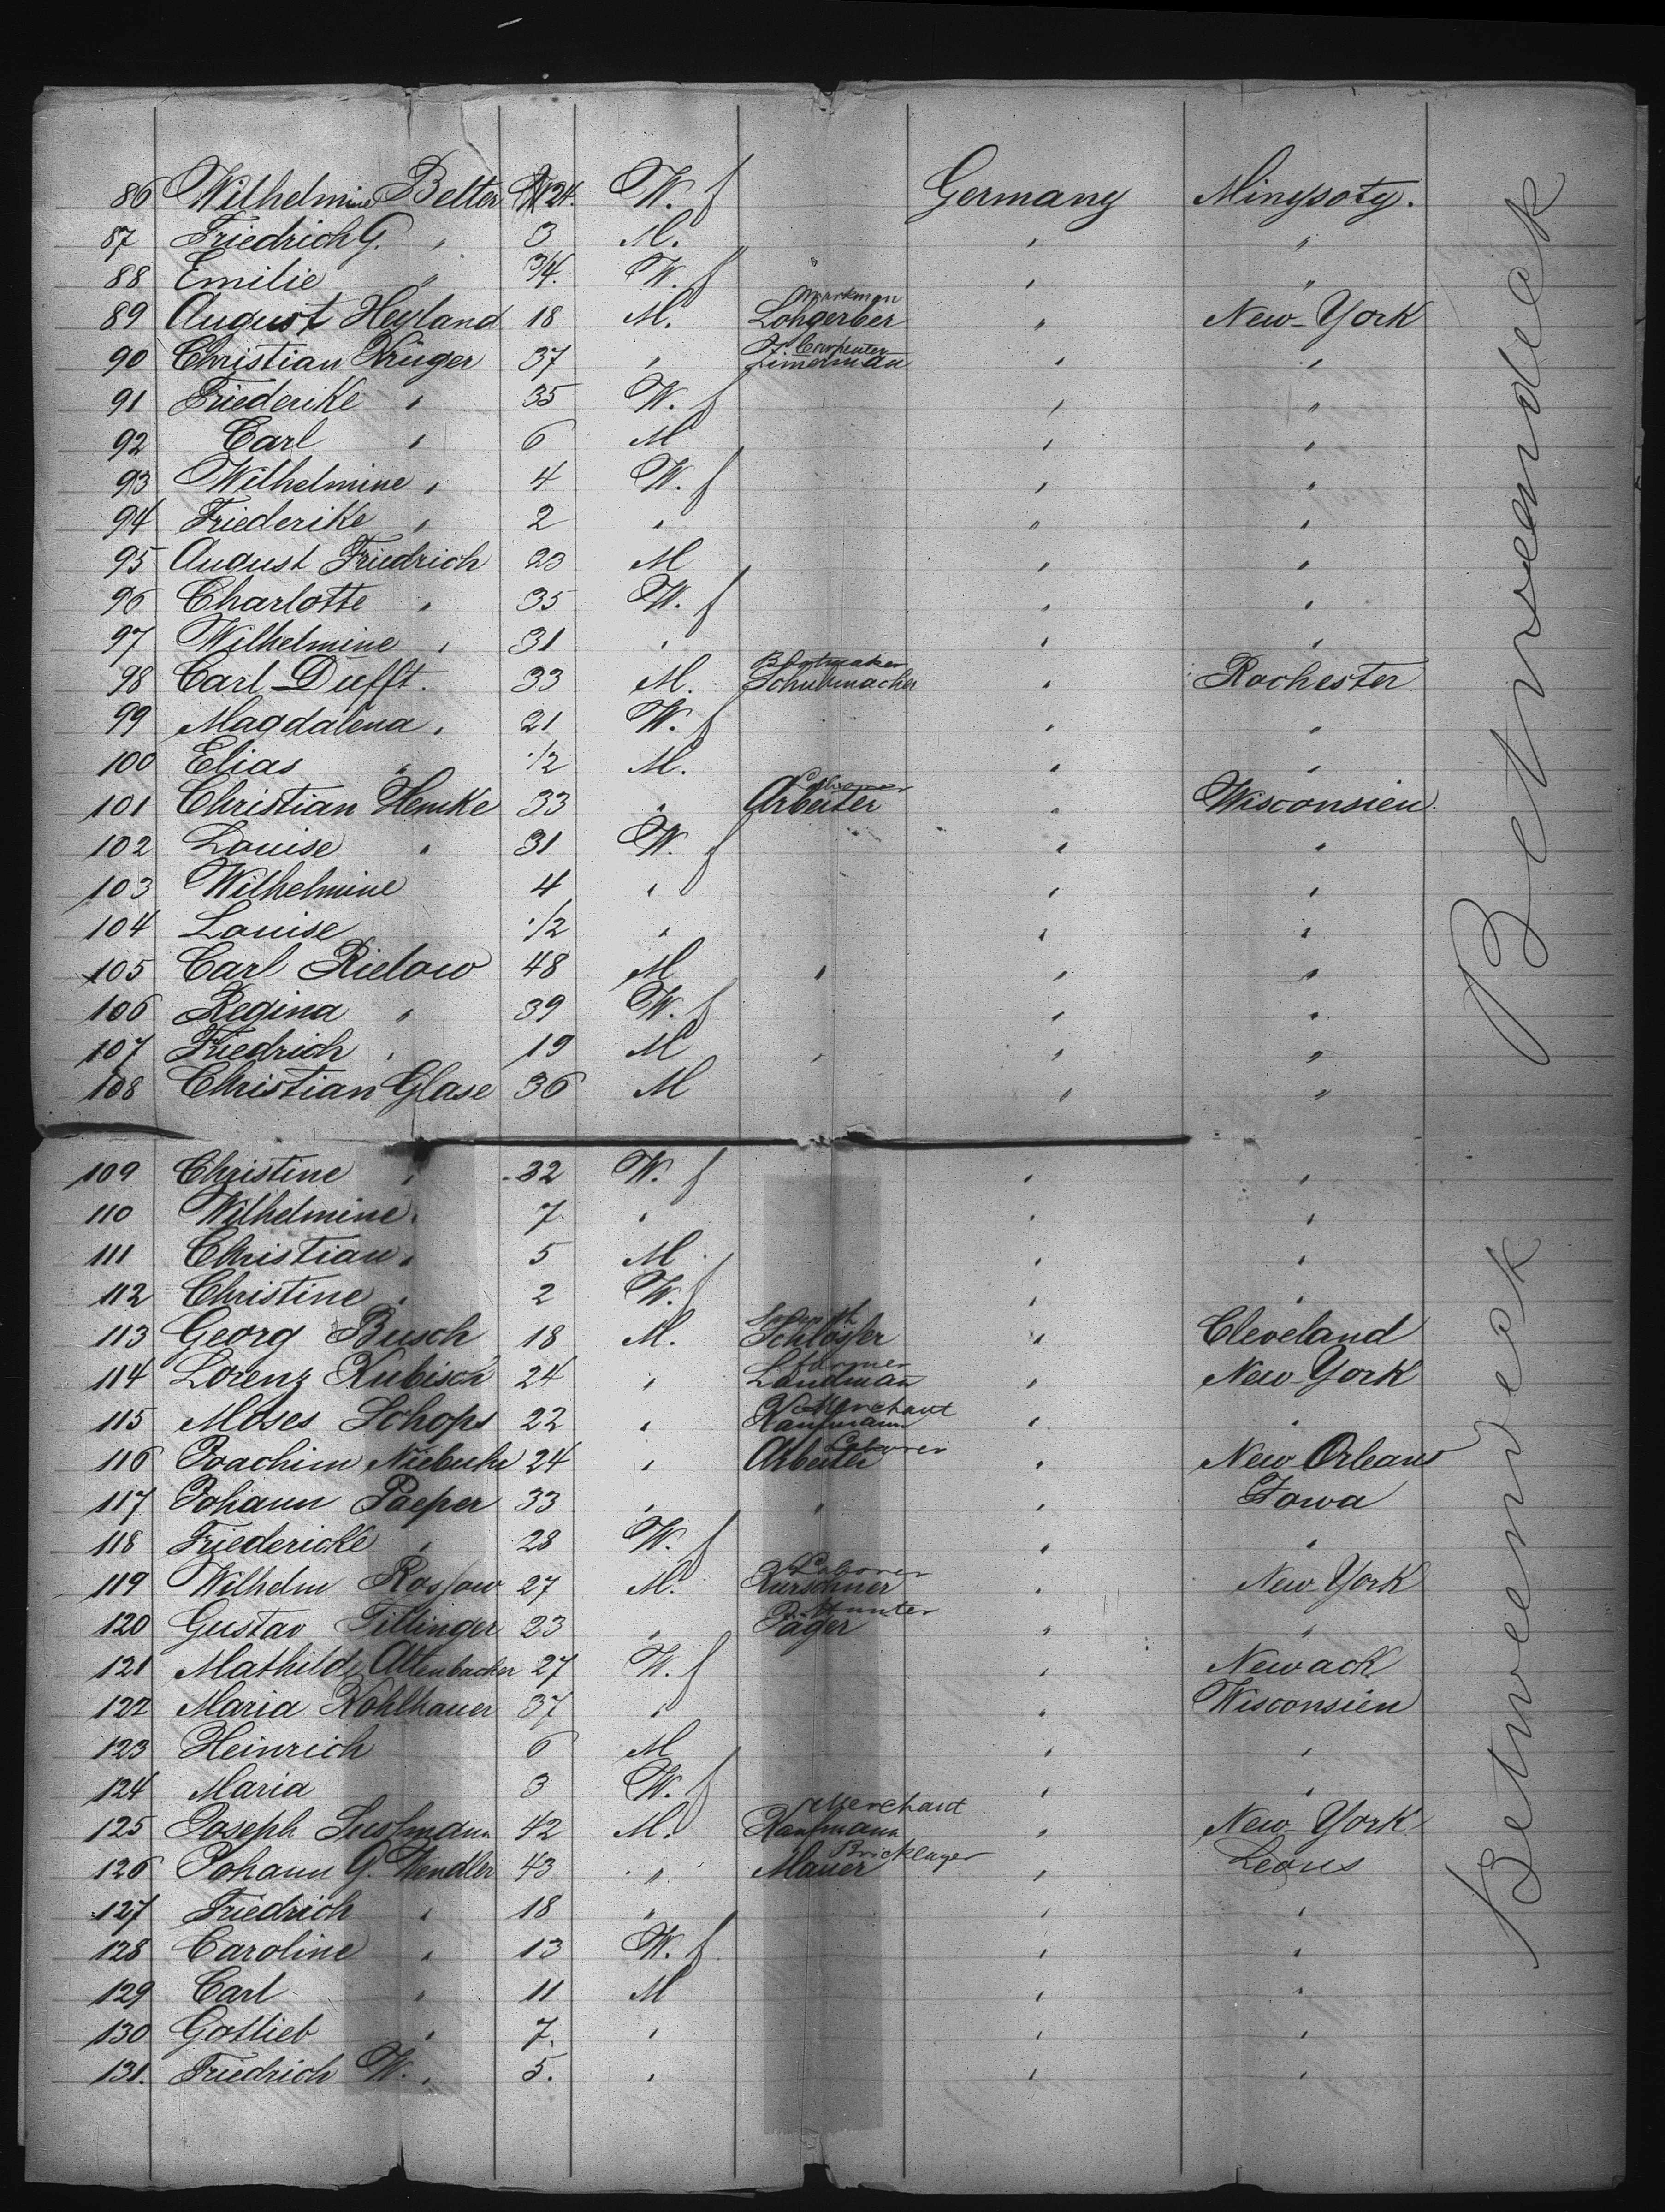 86 Wilhelmine Belter 24. W. f Germany Minysoty.
87 Friedrich G. " 3 M. " "
88 Emilie " 3/4. W. f " "
Workman
89 August Heyland 18 M. Lohgerber " New-York
Carpenter
90 Christian Krüger 37 " Zimerman " "
91 Friederike " 35 W. f " "
92 Carl " 6 M " "
93 Wilhelmine " 4 W. f " "
94 Friederike " 2 " " "
95 August Friedrich 23 M " "
96 Charlotte " 35 W. f " "
97 Wilhelmine " 31 " " "
Bootmaker
98 Carl Dufft. 33 M. Schuhmacher " Rochester
99 Magdalena " 21 W. f " "
100 Elias " 1/2 M. " "
Laborer
101 Christian Hemke 33 " Arbeiter " Wisconsien.
102 Louise " 31 W. f " "
103 Wilhelmine 4 " " "
104 Louise 1/2 " " "
105 Carl Rielow 48 M " " "
106 Regina " 39 W. f " "
107 Friedrich " 19 M " " "
108 Christian Glase 36 M " "
Betweendeck
109 Christine " 32 W. f " "
110 Wilhelmine " 7 " " "
111 Christian " 5 M " "
112 Christine " 2 W. f " "
113 Georg Busch 18 M. Schlosser " Cleveland
farmer
114 Lorenz Kubisch 24 " Landman " New-York
Merchant
115 Moses Schops 22 " Kaufmann " "
Laborer
116 Joachim Niebuhr 24 " Arbeiter " New Orleans
117 Johann Paeper 33 " " " Iowa
118 Friedericke " 28 W. f " "
Laborer
119 Wilhelm Rossow 27 M. Kürschner " New-York
Hunter
120 Gustav Tillinger 23 " Jäger " "
121 Mathilde Altenbacher 27 W. f " Newack
122 Maria Kohlhauer 37 " " Wisconsien
123 Heinrich 6 M " "
124 Maria 3 W. f " "
Merchant
125 Joseph Sussmann 42 M. Kaufmann " New-York
Bricklayer
126 Johann G. Wendler 43 " Mauer "
127 Friedrich " 18 " " "
128 Caroline " 13 W. f " "
129 Carl " 11 M " "
130 Gottlieb " 7. " " "
131. Friedrich W. " 5. " " "
Betweendeck